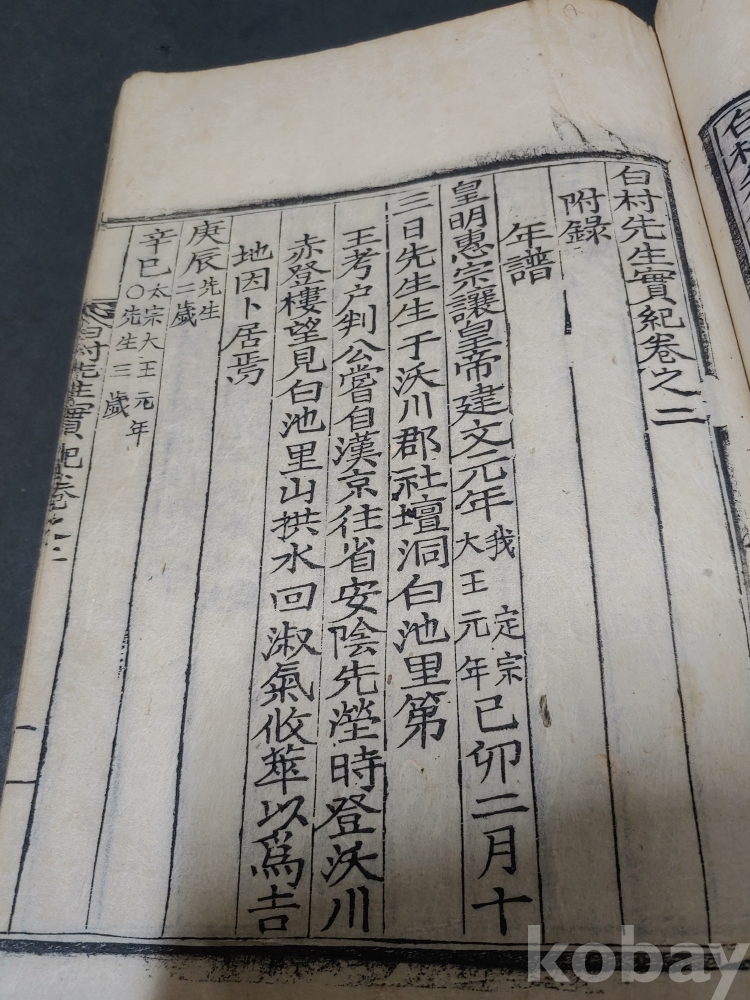 白村先生實紀卷之二
附錄
年譜
皇明惠宗讓皇帝建文元年我 定宗大王元年己卯二月十
三日先生生于沃川郡社壇洞白池里第
王考户判公嘗自漢京往省安陰先塋時登沃川
赤登樓望見白池里山拱水回淑氣攸萃以爲吉
地因卜居焉
庚辰先生二歲
辛巳太宗大王元年○先生三歲
白村先生實紀卷之二
一
白村
kobay